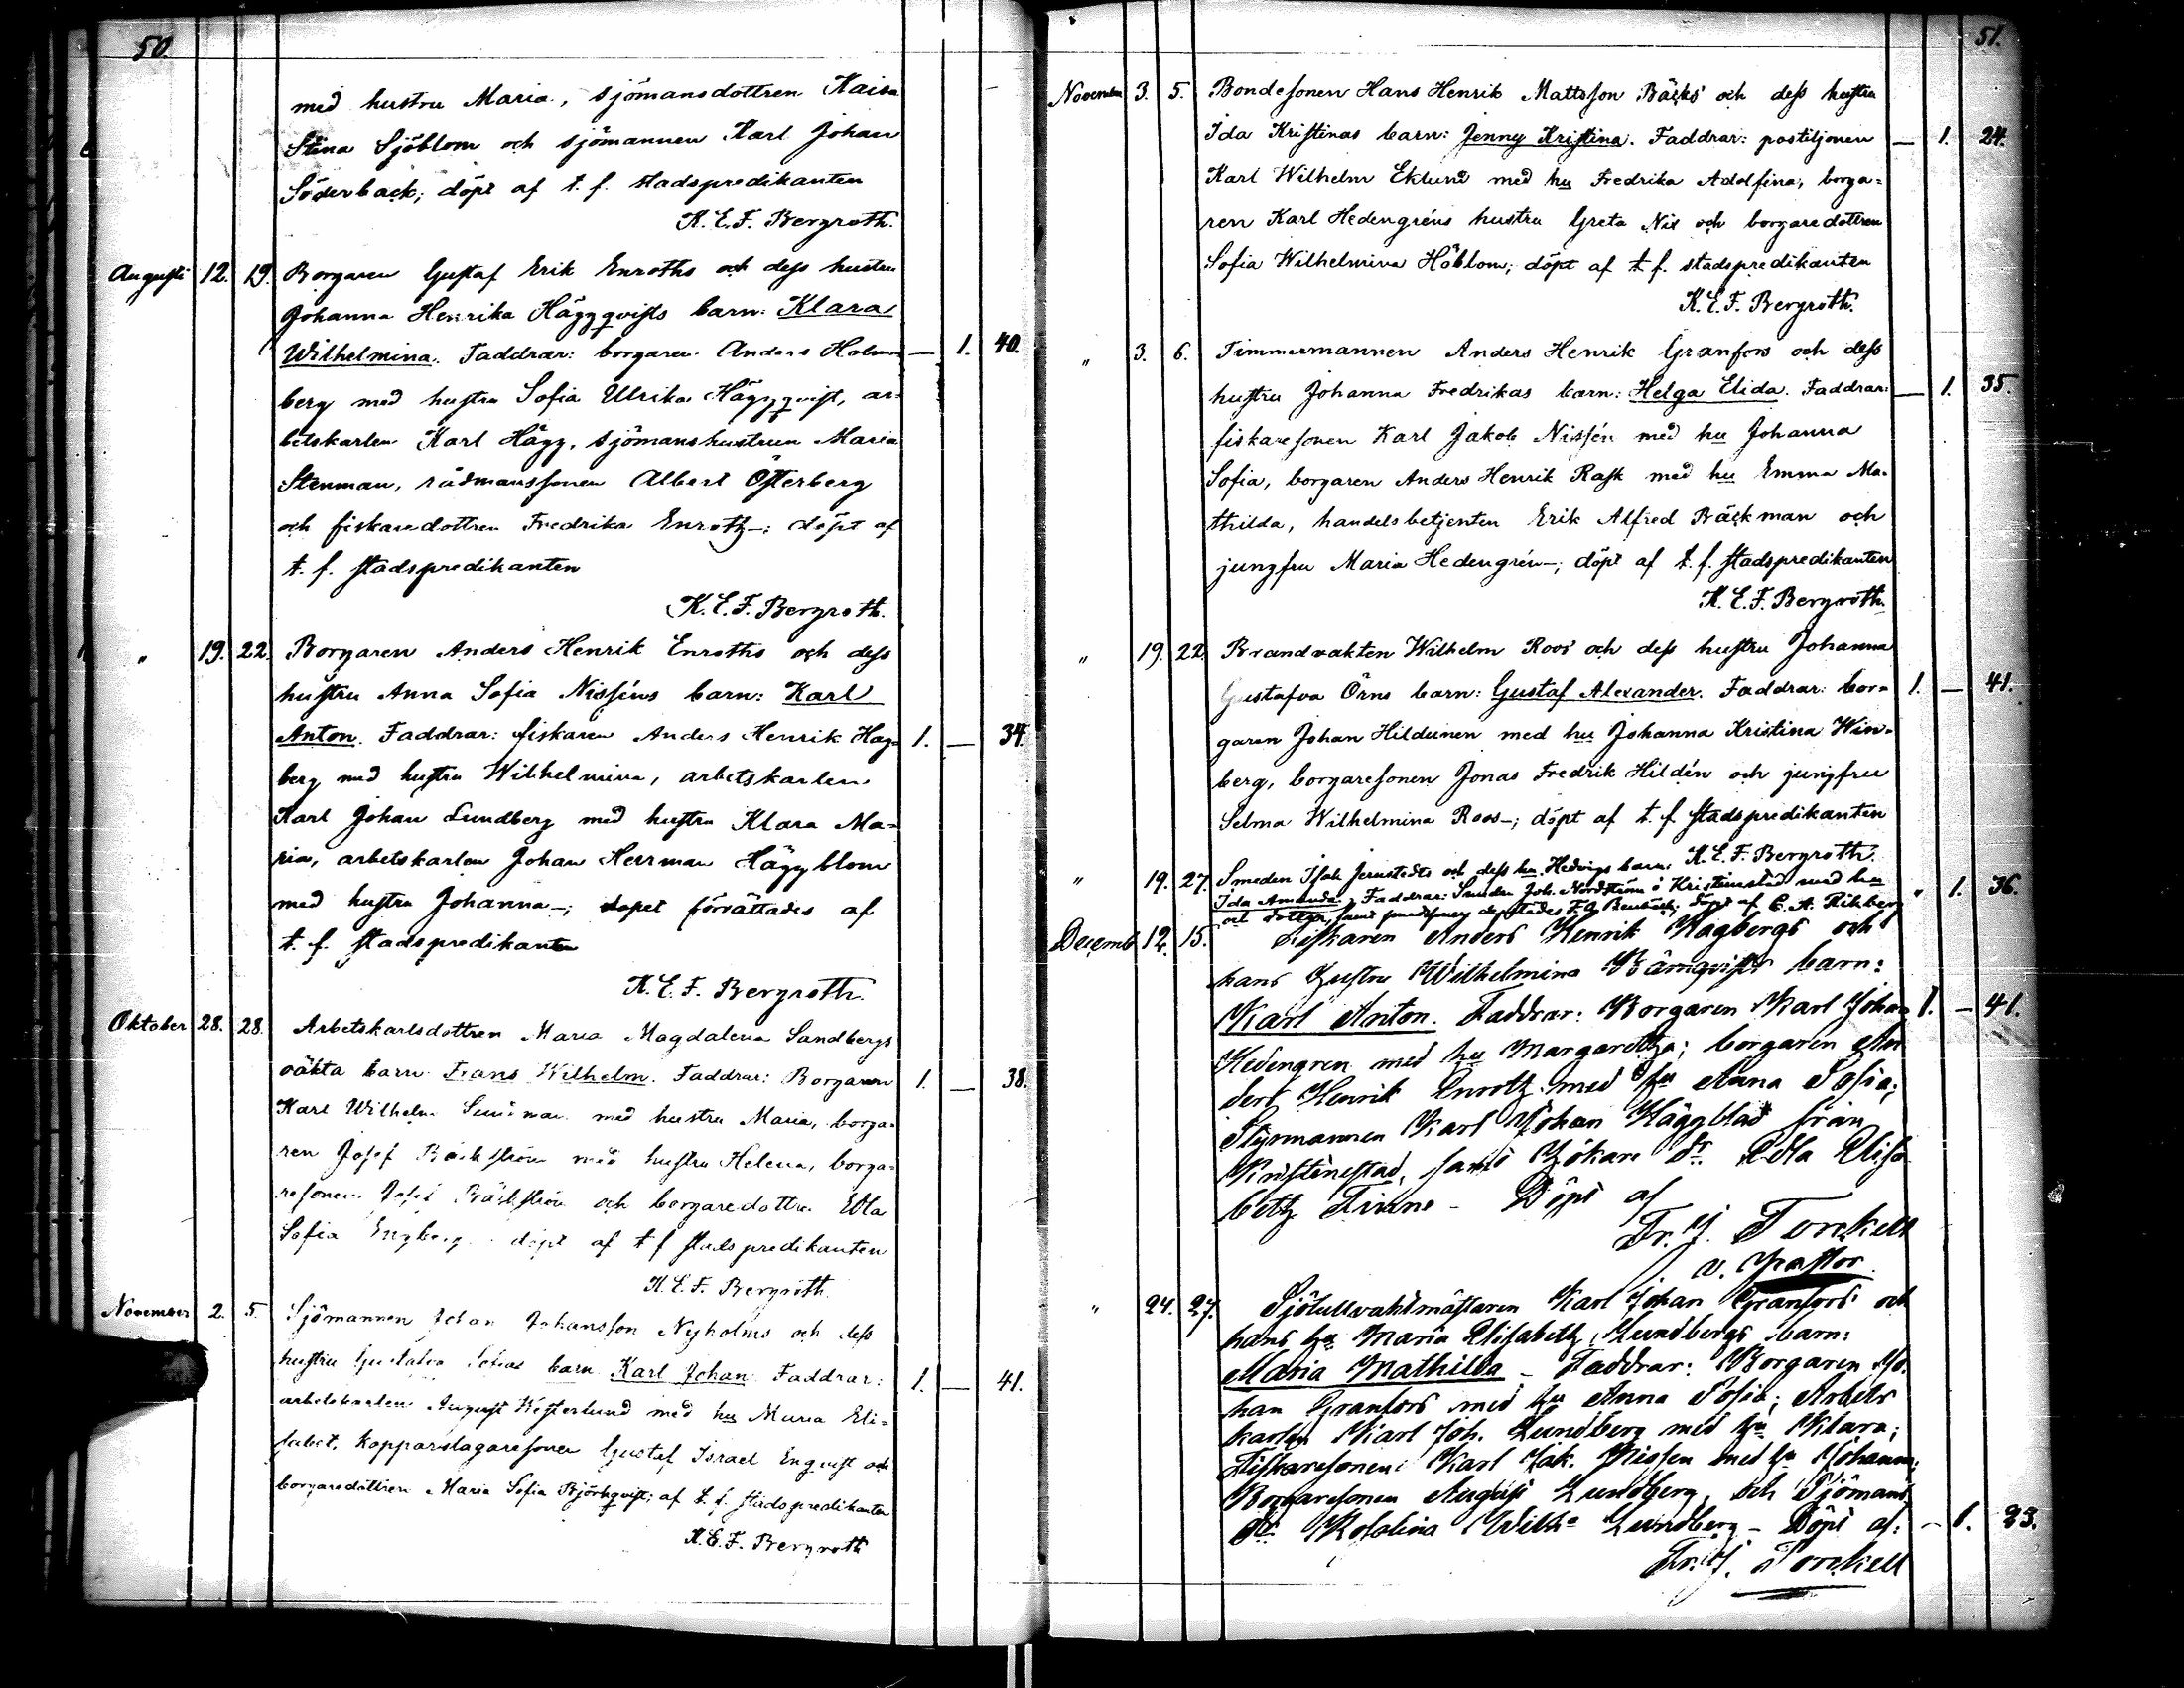 50.
med hustru Maria, sjömansdottren Kaisa
Stina Sjöblom och sjömannen Karl Johan
Söderback; döpt af t. f. stadspredikanten
K. E. F. Bergroth.
Augusti 12. 19. Borgaren Gustaf Erik Enroths och dess hustru
Johanna Henrika Häggqvists barn: Klara
Wilhelmina. Faddrar: borgaren Anders Holm — 1. 40.
berg med hustru Sofia Ulrika Häggqvist, ar-
betskarlen Karl Hägg, sjömanshustrun Maria
Stenman, rådmanssonen Albert Österberg
och fiskaredottren Fredrika Enroth—; döpt af
t. f. stadspredikanten
K. E. F. Bergroth.
" 19. 22. Borgaren Anders Henrik Enroths och dess
hustru Anna Sofia Nisséns barn: Karl
Anton. Faddrar: fiskaren Anders Henrik Hag- 1. — 34.
berg med hustru Wilhelmina, arbetskarlen
Karl Johan Lundberg med hustru Klara Ma-
ria, arbetskarlen Johan Herrman Häggblom
med hustru Johanna—; dopet förrättades af
t. f. stadspredikanten
K. E. F. Bergroth.
Oktober 28. 28. Arbetskarlsdottren Maria Magdalena Sandbergs
oäkta barn Frans Wilhelm. Faddrar: Borgaren 1. — 38.
Karl Wilhelm med hustru Maria, borga-
ren Josef Bäckström med hustru Helena, borga-
resonen Josef Bäckström och borgaredottren Edla
Sofia Engberg döpt af t f stadspredikanten
K. E. F. Bergroth.
November 2. 5. Sjömannen Johan Johansson Nyholms och dess
hustru Gustafva Sofias barn Karl Johan Faddrar: 1. — 41.
arbetskarlen August Westerlund med hu Maria Eli-
sabet, kopparslagaresonen Gustaf Israel Enqvist och
borgaredottren Maria Sofia Björkqvist; af t. f. stadspredikanten
K. E. F. Bergroth
51.
November 3. 5. Bondesonen Hans Henrik Mattsson Bäcks och dess hustru
Ida Kristinas barn: Jenny Kristina. Faddrar: postiljonen — 1. 24.
Karl Wilhelm Eklund med hu Fredrika Adolfina, borga-
ren Karl Hedengréns hustru Greta Nis och borgaredottren
Sofia Wilhelmina Höblom; döpt af t. f. stadspredikanten
K. E. F. Bergroth.
" 3. 6. Timmermannen Anders Henrik Granfors och dess
hustru Johanna Fredrikas barn: Helga Elida. Faddrar: — 1. 35.
fiskaresonen Karl Jakob Nissén med hu Johanna
Sofia, borgaren Anders Henrik Rask med hu Emma Ma-
thilda, handelsbetjenten Erik Alfred Bäckman och
jungfru Maria Hedengrén—; döpt af t. f. stadspredikanten
K. E. F. Bergroth.
" 19. 22. Brandvakten Wilhelm Roos' och dess hustru Johanna
Gustafva Örns barn: Gustaf Alexander. Faddrar: bor- 1. — 41.
garen Johan Hildeinen med hu Johanna Kristina Win-
berg, borgaresonen Jonas Fredrik Hildén och jungfru
Selma Wilhelmina Roos—; döpt af t. f. stadspredikanten
K. E. F. Bergroth.
" 19. 27. Smeden Isak Jernstedts och dess hu Hedvigs barn:
Ida Amanda. Faddrar: Smeden Joh. Nordström i Kristinestad med hu " 1. 36.
och dotter, samt döpt af C. A. Rihberg
Decemb 12. 15. Fiskaren Anders Henrik Hagbergs och
hans hustru Wilhelmina barn:
Karl Anton. Faddrar: Borgaren Karl Johan 1. — 41.
Hedengren med hu Margaretha; borgaren An
ders Henrik Enroth med hu Anna Sofia;
Styrmannen Karl Johan Häggblad från
Kristinestad, samt Dr. Edla Elisa-
beth Finne — Döpt af
Fr. J. Torckell
v. Pastor.
" 24. 27. Sjötullvaktmästaren Karl Johan Granfors och
hans hu Maria Elisabeth Lundbergs barn:
Maria Mathilda — Faddrar: Borgaren Jo-
han Granfors med hu Anna Sofia; Arbets
karlen Karl Joh. Lundberg med hu Klara;
Fiskaresonen Karl Jak. Nissen med hu Johanna;
Borgaresonen August Lundberg, och Sjömans
Dr. Rosalina Wilha Lundberg — Döpt af: — 1. 23.
Fr. J. Torckell